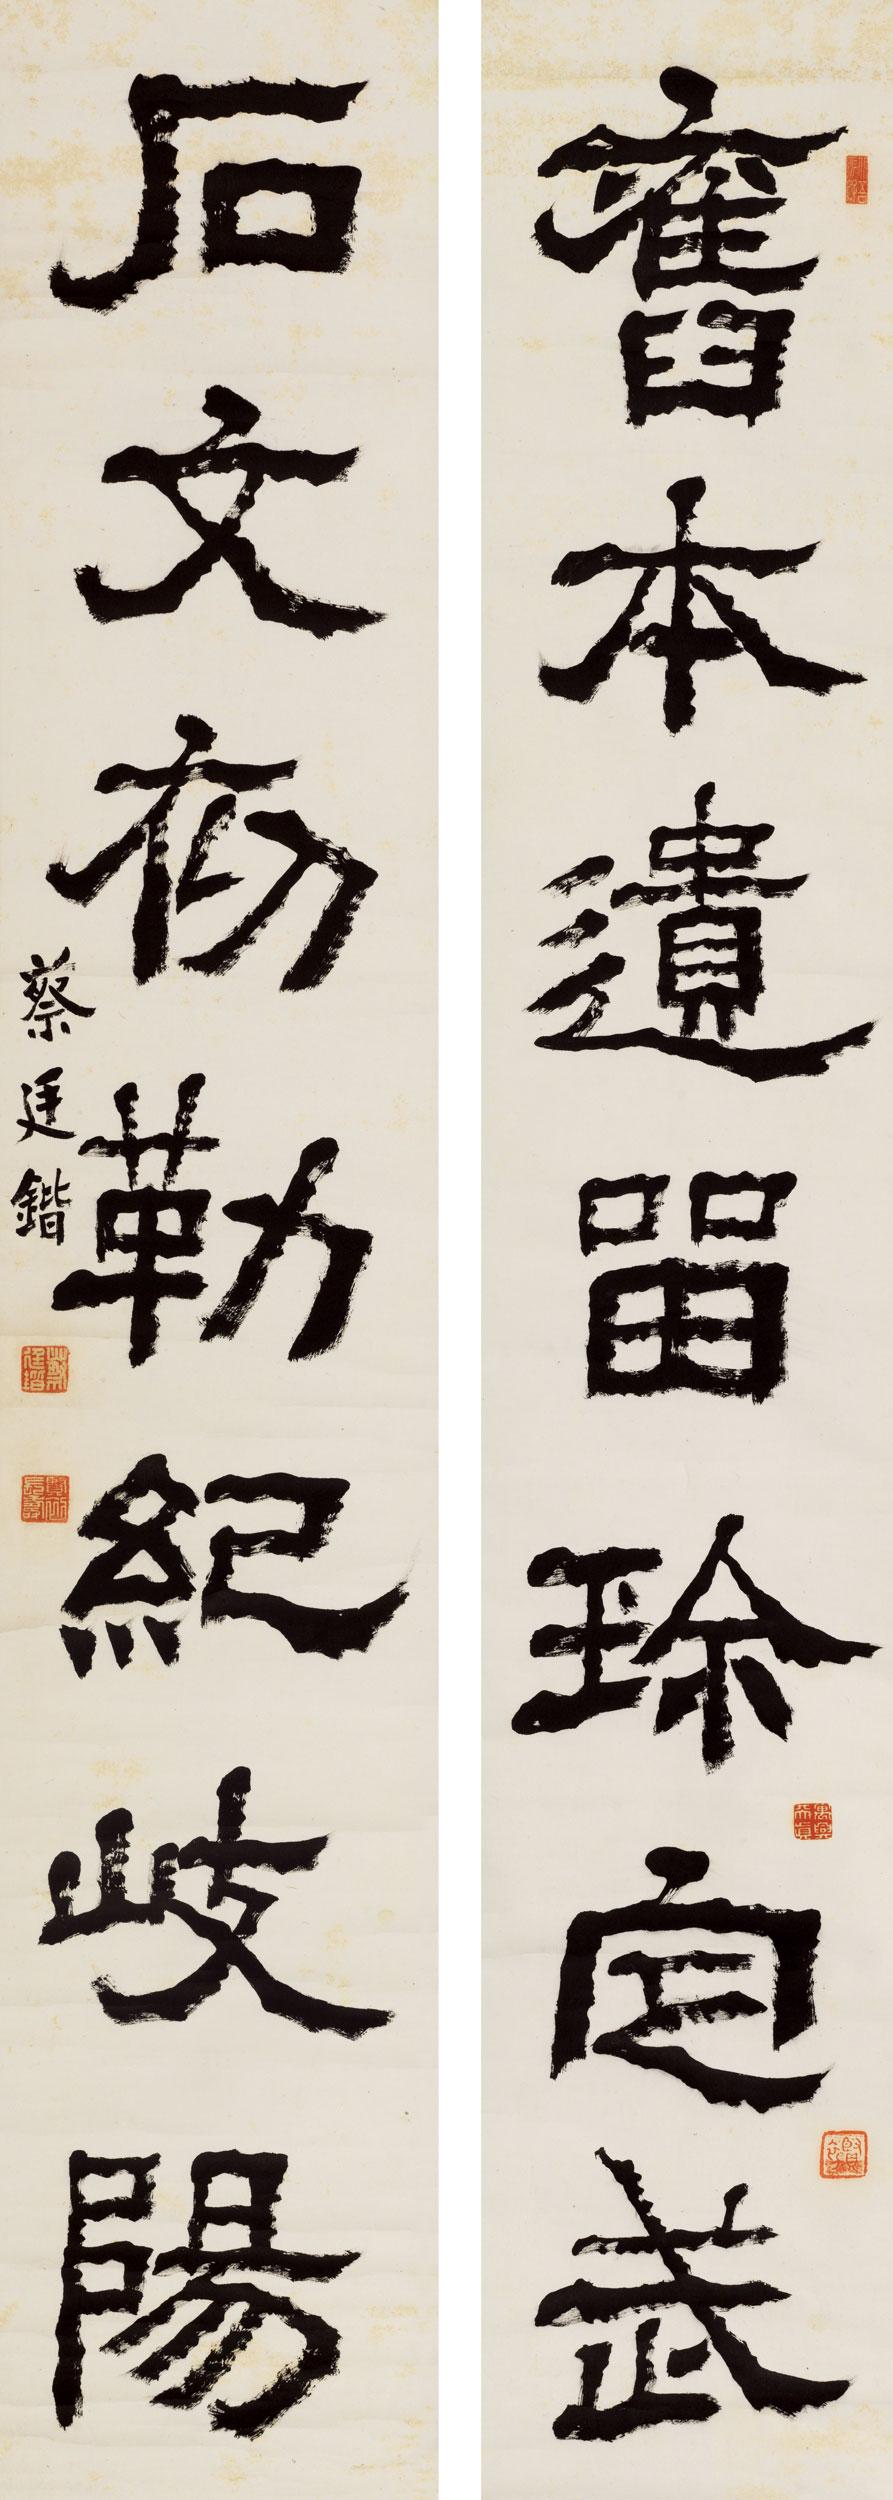 舊本遺留珎定武
石文初勒紀岐陽
蔡廷鍇
蔡廷鍇